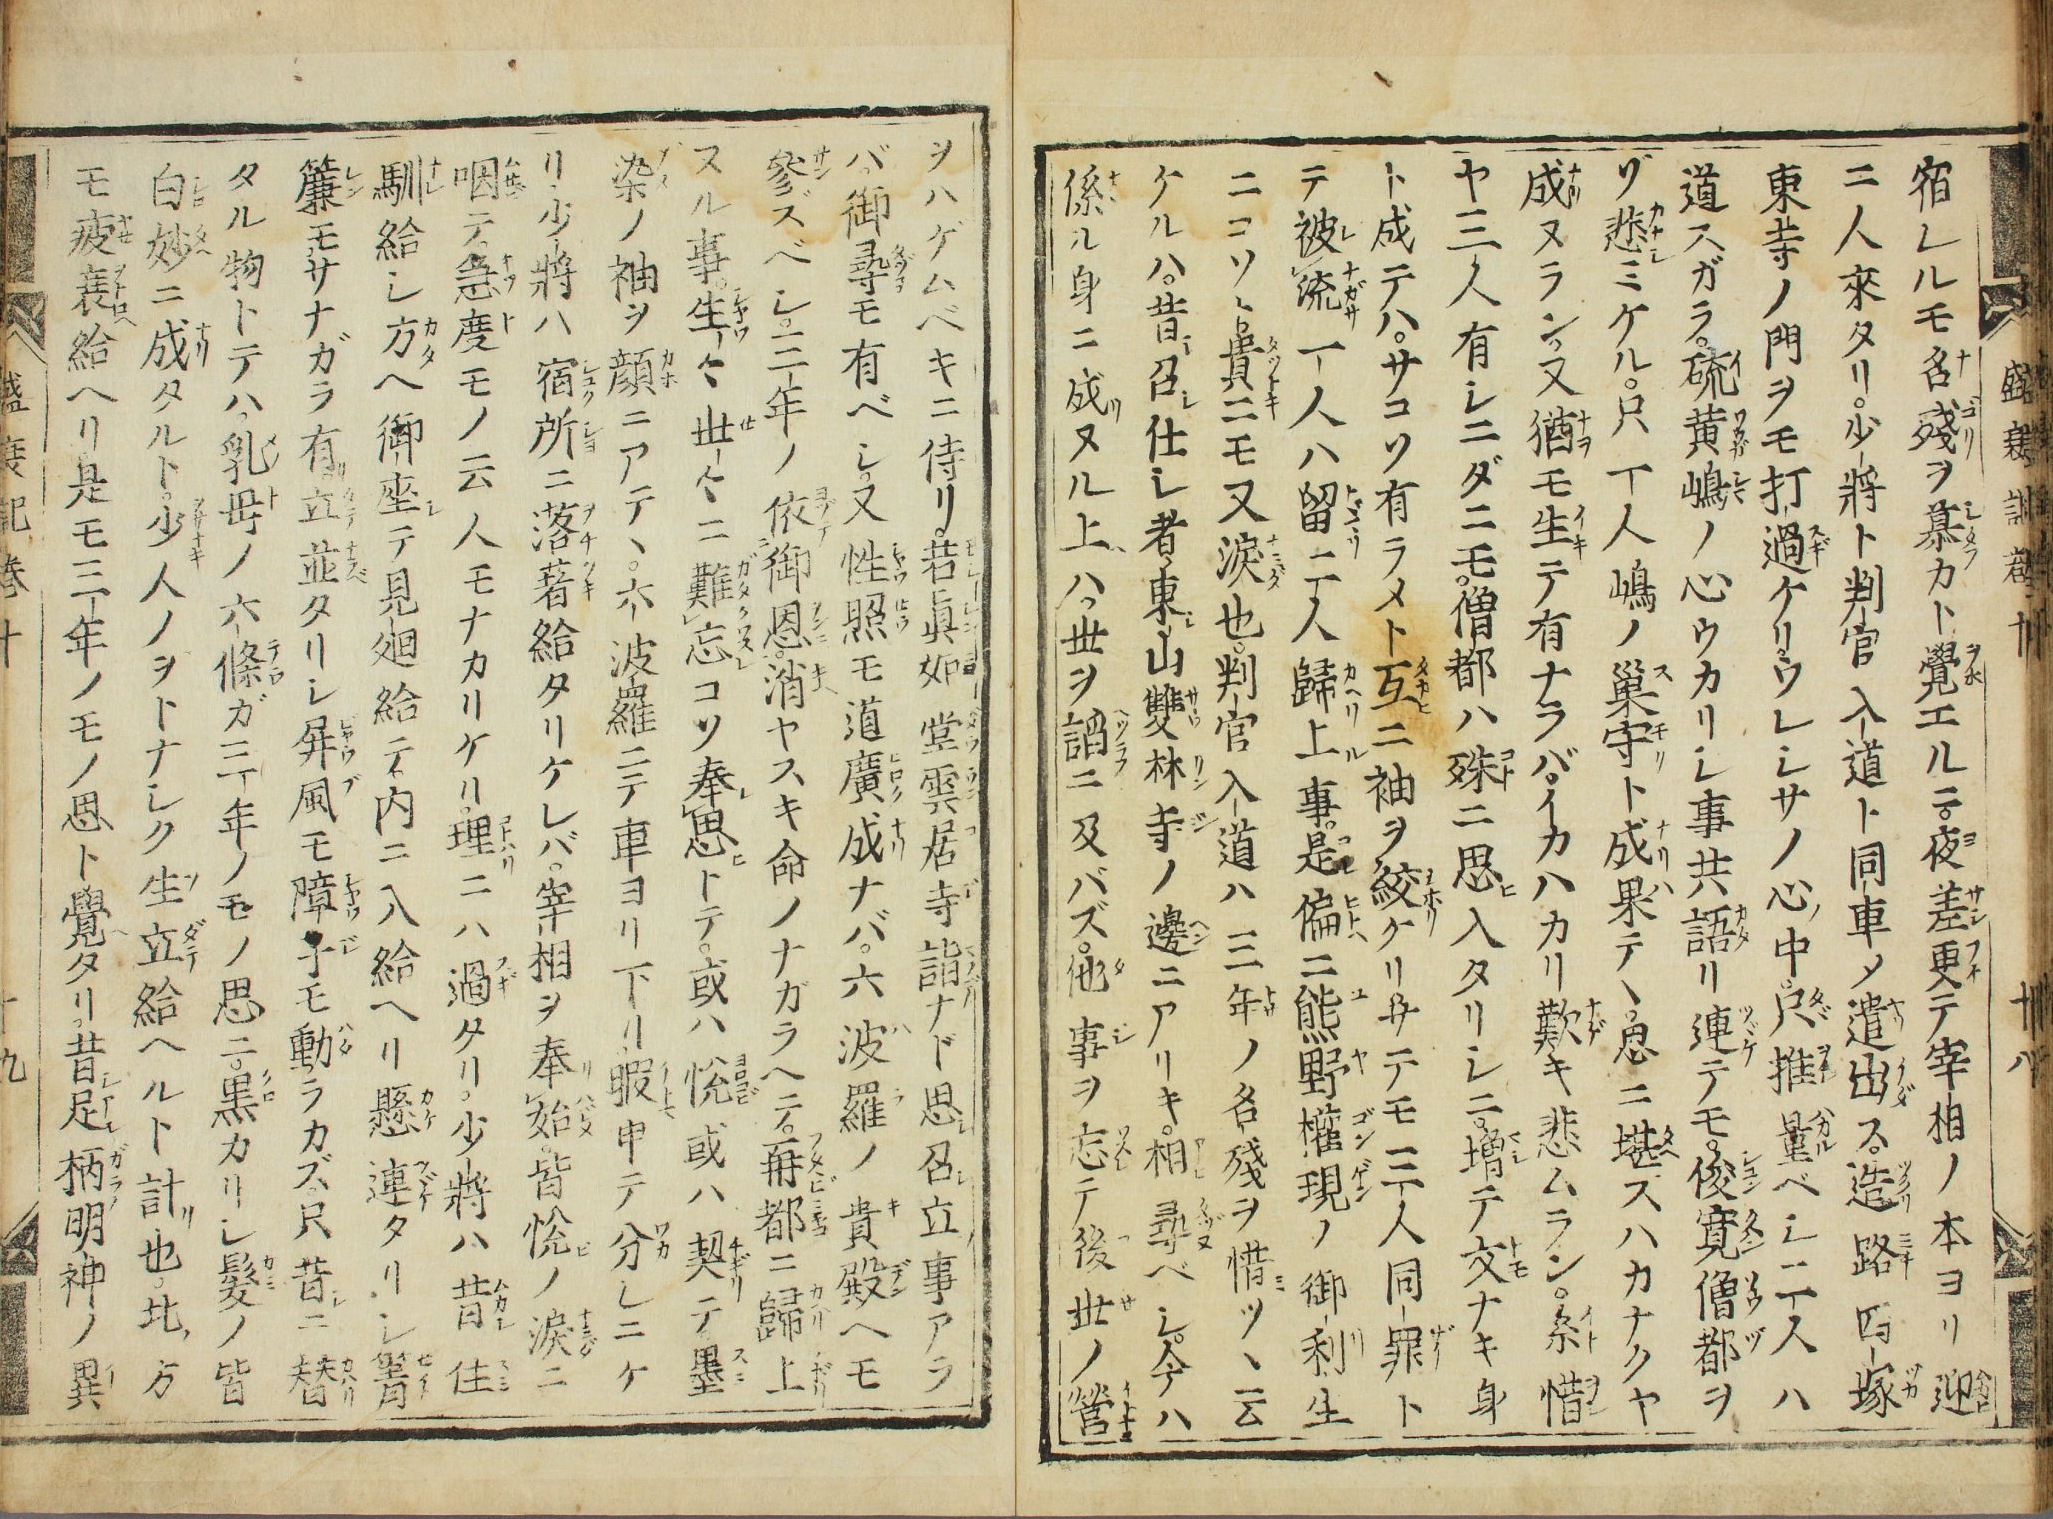 宿レルモ名殘ヲ慕カト覺エルニ。夜差更テ宰相ノ本ヨリ迎
ニ人來タリ。少將ト判官入道ト同車メ遣出ス。造路四塚
東寺ノ門ヲモ打過ケリ。ウレシサノ心ノ中。只推量ベシ。二人ハ
道スガラ。硫黄嶋ノ心ウカリシ事共語リ連テモ。俊寛僧都ヲ
ゾ悲ミケル。只一人嶋ノ巢守ト成果テヽ。思ニ堪ズハカナクヤ
成ヌラン。又猶モ生テ有ナラバ。イカハカリ歎キ悲ムラン。糸惜
ヤ三人有シニダニモ。僧都ハ殊ニ思入タリシニ。増テ交ナキ身
ト成テハ。サコソ有ラメト互ニ袖ヲ絞ケリ。サテモ三人同罪ト
テ被流。一人ハ留ニ二人歸上事。是偏ニ熊野權現ノ御利生
ニコソト貴ニモ又涙也。判官入道ハ三年ノ名殘ヲ惜ツヽ云
ケルハ。昔召仕シ者。東山雙林寺ノ邊ニアリキ。相尋ベシ。今ハ
係ル身ニ成ヌル上ハ。世ヲ謟ニ及バズ。他事ヲ忘テ後世ノ營
ヲハゲムベキニ侍リ。若眞如堂雲居寺詣ナド思召立事アラ
バ。御尋モ有ベシ。又性照モ道廣成ナバ。六波羅ノ貴殿ヘモ
參ズベシ。三年ノ依御恩。消ヤスキ命ノナガラヘテ。再都ニ歸上
スル事。生々世々ニ難忘コソ奉思トテ。或ハ悦或ハ契テ墨
染ノ袖ヲ顔ニアテヽ。六波羅ニテ車ヨリ下リ。暇申テ分レニケ
リ。少將ハ宿所ニ落著給タリケレバ。宰相ヲ奉始。皆悦ノ涙ニ
咽テ。急度モノ云人モナカリケリ。理ニハ過タリ。少將ハ昔住
馴給シ方ヘ御座テ見廻給テ。内ニ入給ヘリ。懸連タリシ簀
簾モ。サナガラ有。立並タリシ屏風モ障子モ動ラカズ。只昔ニ替
タル物トテハ。乳母ノ六條ガ三年ノモノ思ニ。黒カリシ髮ノ皆
白妙ニ成タルト。少人ノヲトナシク生立給ヘルト計也。北ノ方
モ疲衰給ヘリ。是モ三年ノモノ思ト覺タリ。昔足柄明神ノ異
盛衰記卷十
十八
盛衰記卷十
十九